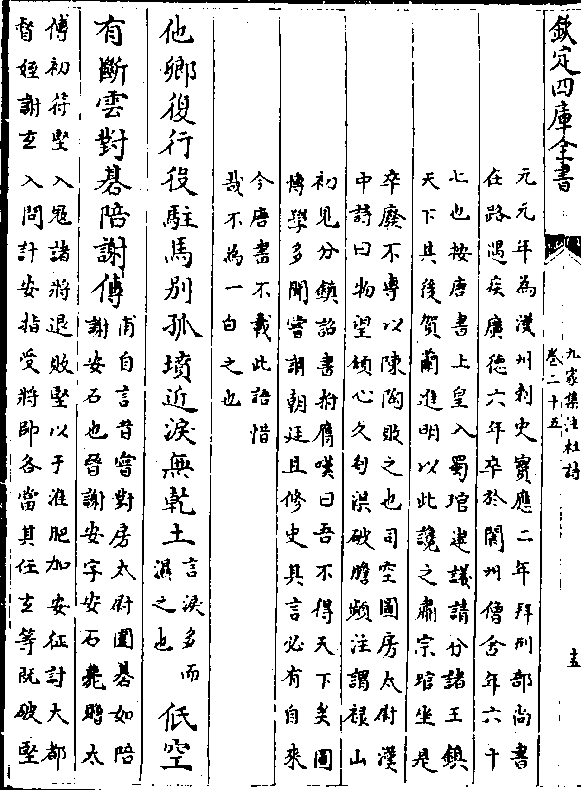 欽定四庫全書
九家集注杜詩
卷二十五
十五
元元年為漢州刺史寳應二年拜刑部尚書
在路遇疾廣德六年卒於閬州僧舍年六十
七也按唐書上皇入蜀琯建議請分諸王鎮
天下其後賀蘭進明以此讒之肅宗琯坐是
卒廢不專以陳陶敗之也司空圖房太尉漢
中詩曰物望傾心久匈渠破膽頻注謂禄山
初見分鎮詔書拊膺嘆曰吾不得天下矣圖
博學多聞嘗謂朝廷且修史其言必有自來
今唐書不載此語惜
哉不為一白之也
他鄉復行役駐馬别孤墳近淚無乾土言淚多而濕之也低空
有斷雲對碁陪謝傅甫自言昔曾對房太尉圍碁如陪
謝安石也晉謝安字安石薨贈太
傅初苻堅入冦諸將退敗堅以于淮肥加安征討大都
督姪謝玄入問計安指受將帥各當其任玄等既破堅